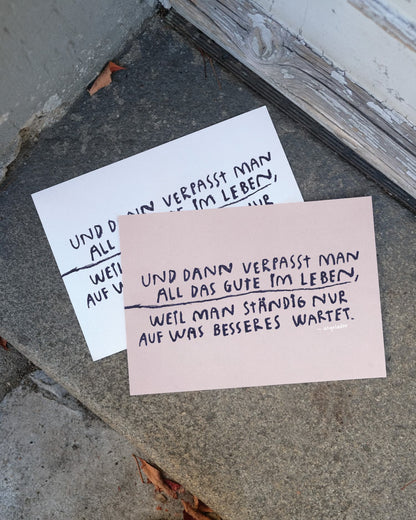 UND DANN VERPASST MAN
ALL
WEIL
NUR
AUF W
UND DANN VERPASST MAN
ALL DAS GUTE IM LEBEN,
WEIL MAN STÄNDIG NUR
AUF WAS BESSERES WARTET.